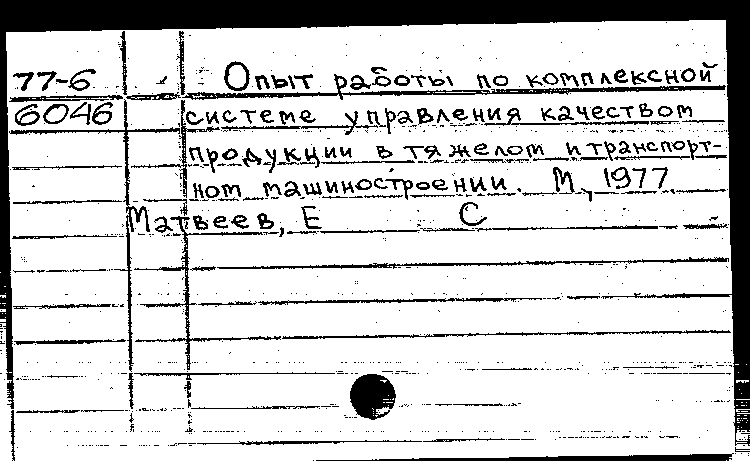 77-6 Опыт работы по комплексной
6046 системе управления качеством
продукции в тяжелом и транспорт-
ном машиностроении. М., 1977.
Матвеев, Е С